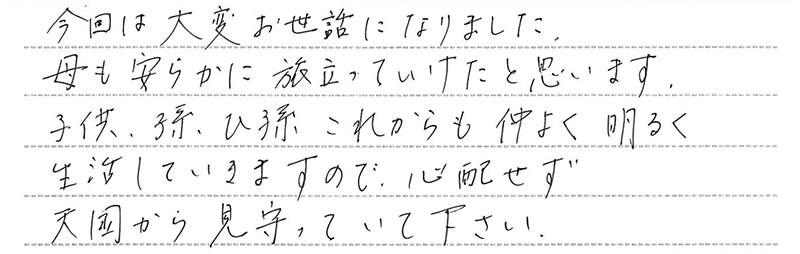 今回は大変お世話になりました.
母も安らかに旅立っていけたと思います.
子供、孫、ひ孫 これからも 仲よく 明るく
生活していきますので、心配せず
天国から見守っていて下さい.